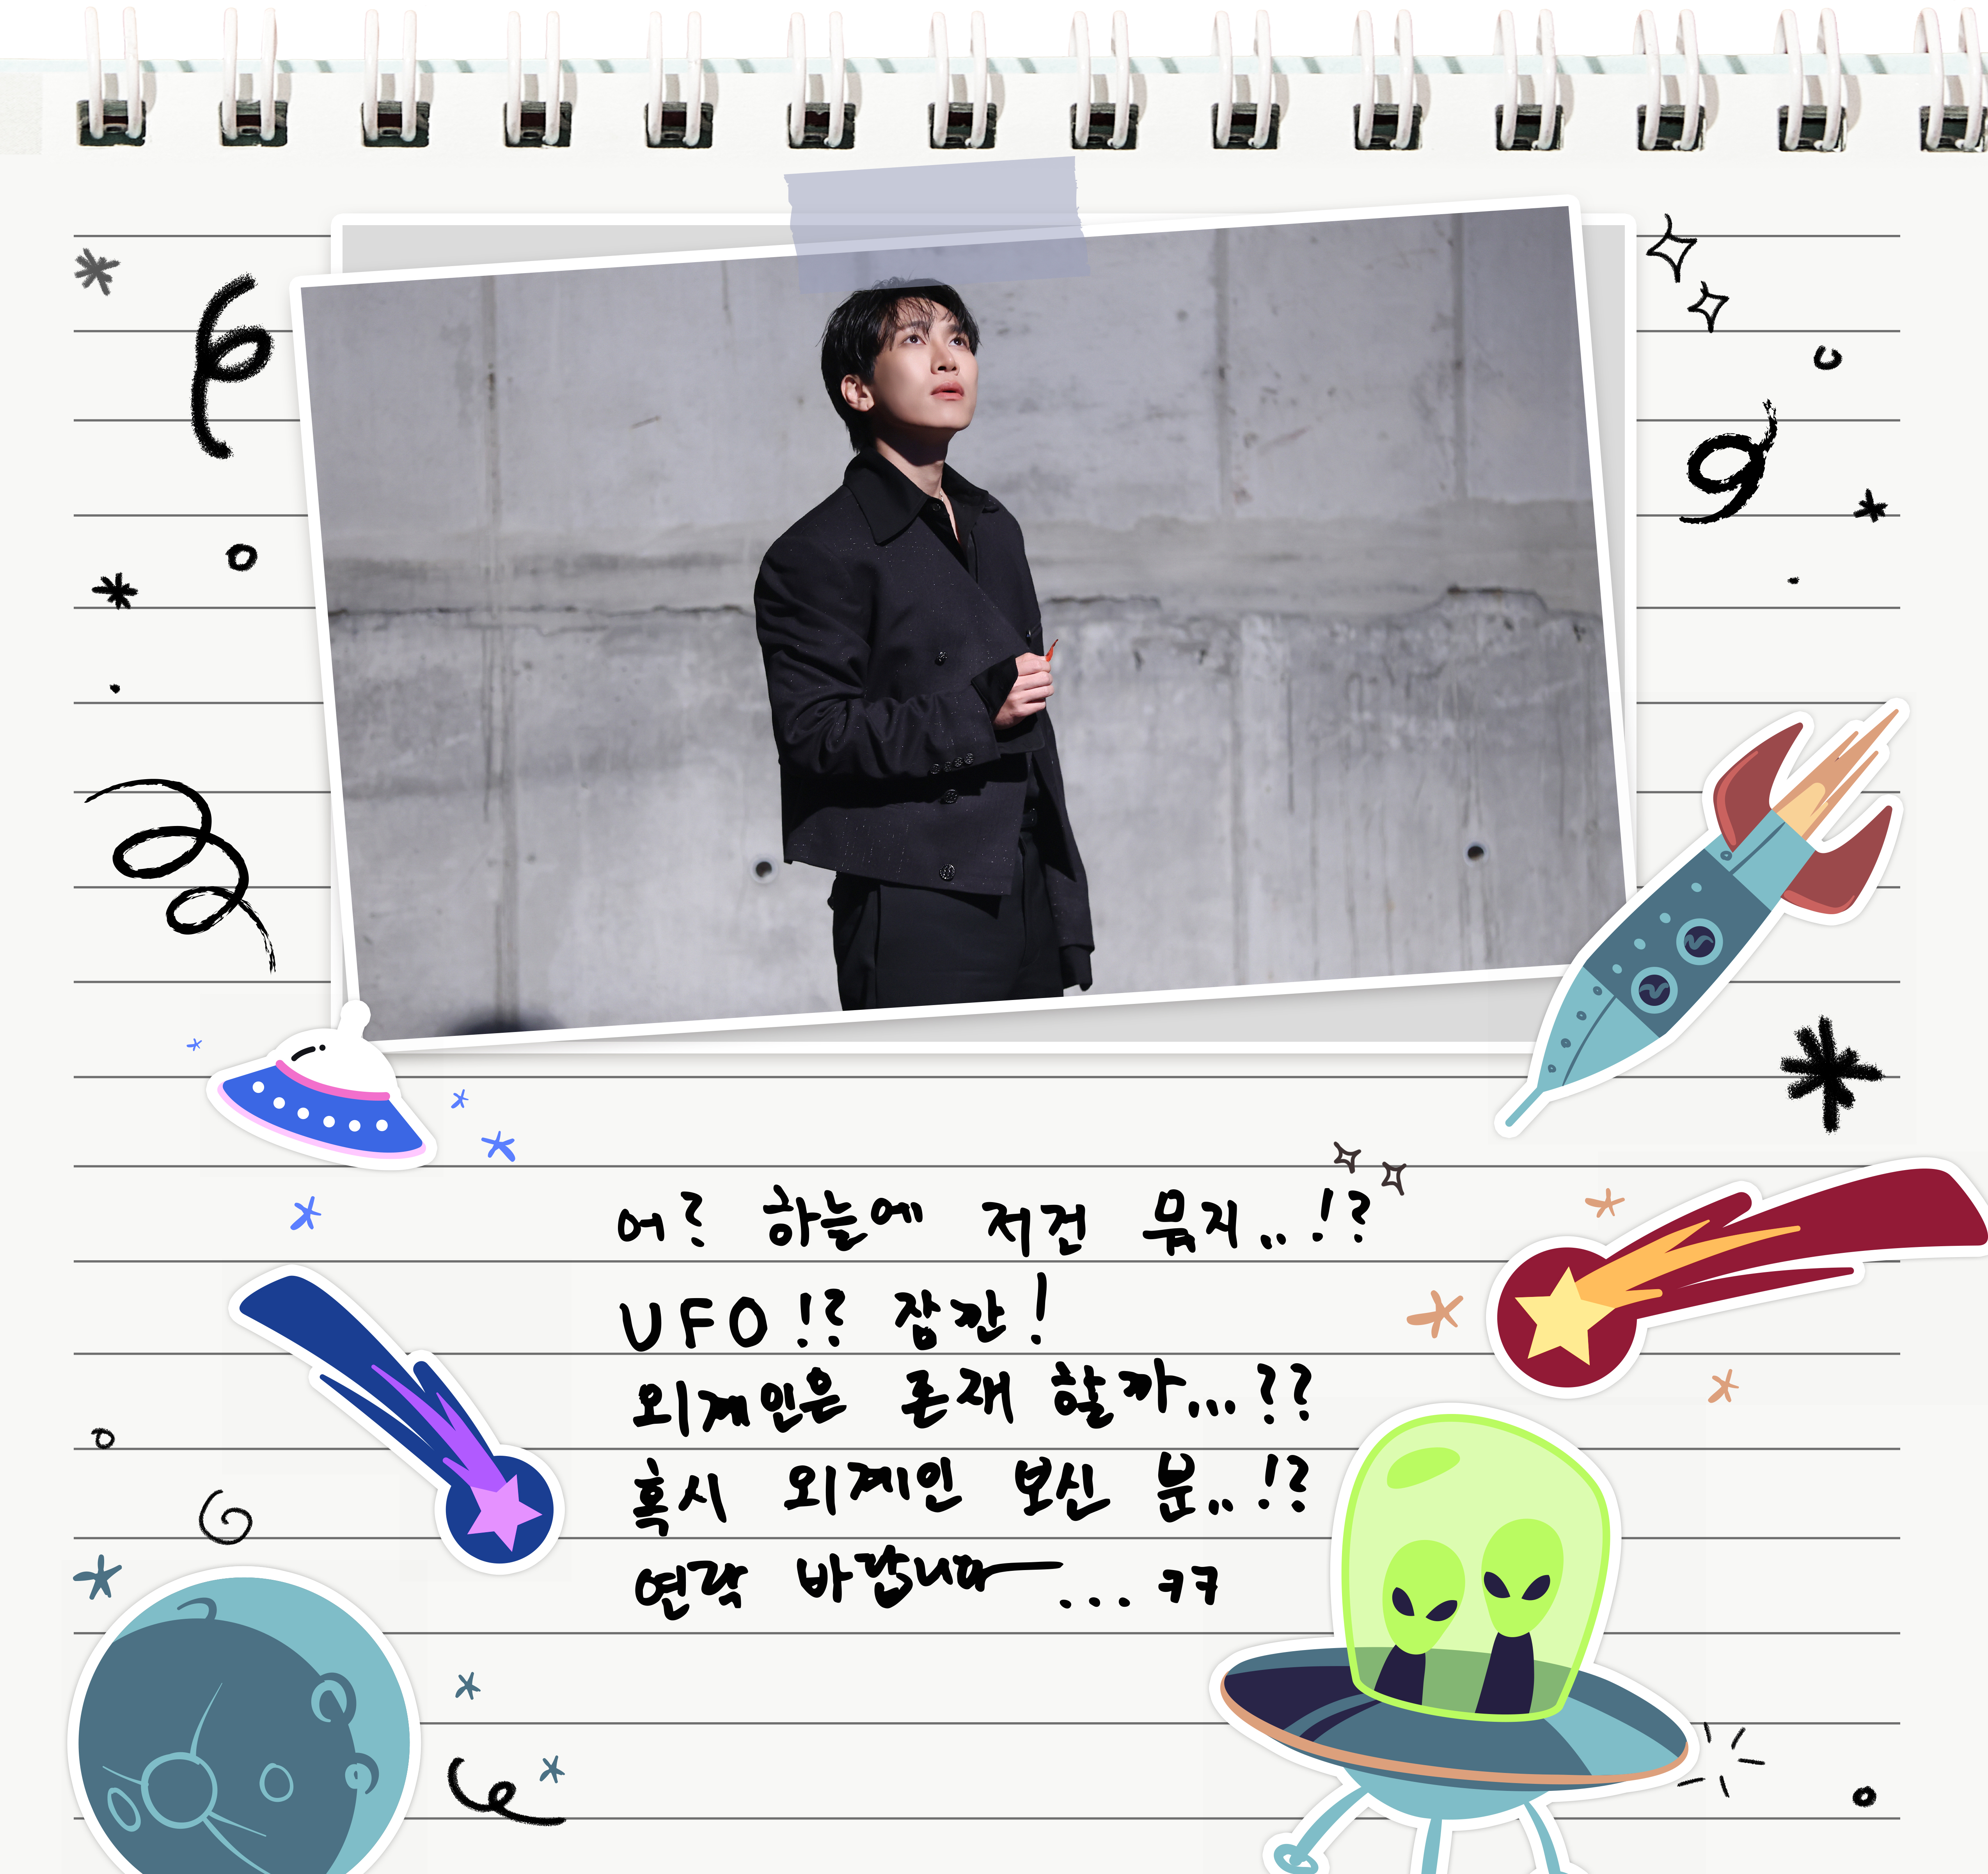 어? 하늘에 저건 뭐지..!?
UFO!? 잠깐!
외계인은 존재 할까...??
혹시 외계인 보신 분..!?
연락 바랍니다ㅡ... ㅋㅋ